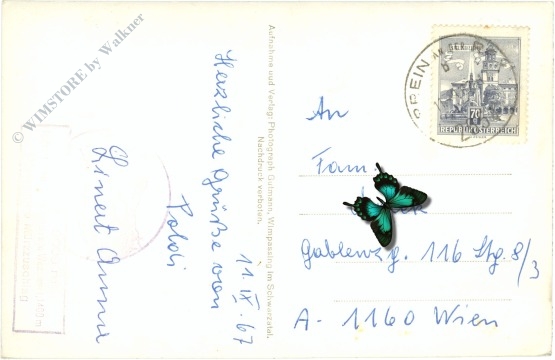 © WIMSTORE by Walkner
11. IX. 67
Herzliche Grüße von
Poldi
Linert Anna
Aufnahme und Verlag: Photograph Gutmann, Wimpassing im Schwarzatal.
Nachdruck verboten.
PREIN AN DER
70
REPUBLIK ÖSTERREICH
An
Fam.
Gablenzg. 116 Stg. 8/3
A - 1160 Wien